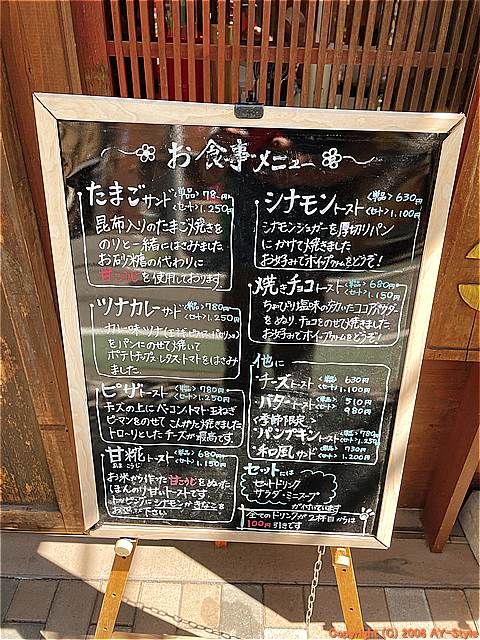 お食事メニュー
たまごサンド <単品> 780円
<セット> 1,250円
昆布入りのたまご焼きを
のりと一緒にはさみました
お砂糖の代わりに
甘こうじを使用しております
ツナカレーサンド <単品> 780円
<セット> 1,250円
カレー味ツナ
をパンにのせて焼いて
ポテトチップ・レタス・トマトをはさみ
ました
ピザトースト <単品> 780円
<セット> 1,250円
チーズの上にベーコン・トマト・玉ねぎ
ピーマンをのせて こんがりと焼きました
トローリとした チーズが最高です
甘糀トースト <単品> 680円
あまこうじ <セット> 1,150円
お米から作った甘こうじをぬった
ほんのり甘いトーストです
トッピングにシナモンかきなこを
お選び下さい
シナモントースト <単品> 630円
<セット> 1,100円
シナモンシュガーを厚切りパン
にかけて焼きました
お好みでホイップクリームをどうぞ!
焼きチョコトースト <単品> 680円
<セット> 1,150円
ちょぴり塩味の効いたココアパウダー
をぬり、チョコをのせて焼きました
お好みでホイップクリームをどうぞ!
他に
チーズトースト <単品> 630円
<セット> 1,100円
バタートースト <単品> 510円
<セット> 980円
<季節限定>
パンプキントースト <単品> 780円
<セット> 1,250円
和風サンド <単品> 730円
<セット> 1,200円
セットには
セットドリンク
サラダ・ミニスープ
が付いています
全てのドリンクが2杯目からは
100円引きです
Copyright (C) 2006 AY-Style